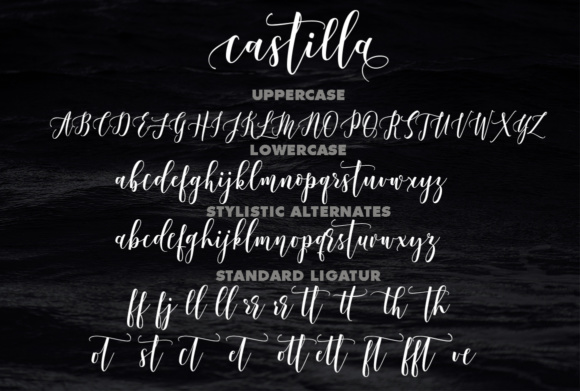 castilla
UPPERCASE
ABCDEFGHIJKLMNOPQRSTUVWXYZ
LOWERCASE
abcdefghijklmnopqrstuvwxyz
STYLISTIC ALTERNATES
abcdefghijklmnopqrstuvwxyz
STANDARD LIGATUR
ff fj ll ll rr rr tt tt th th
ot st ct et ott ett ft fft ve